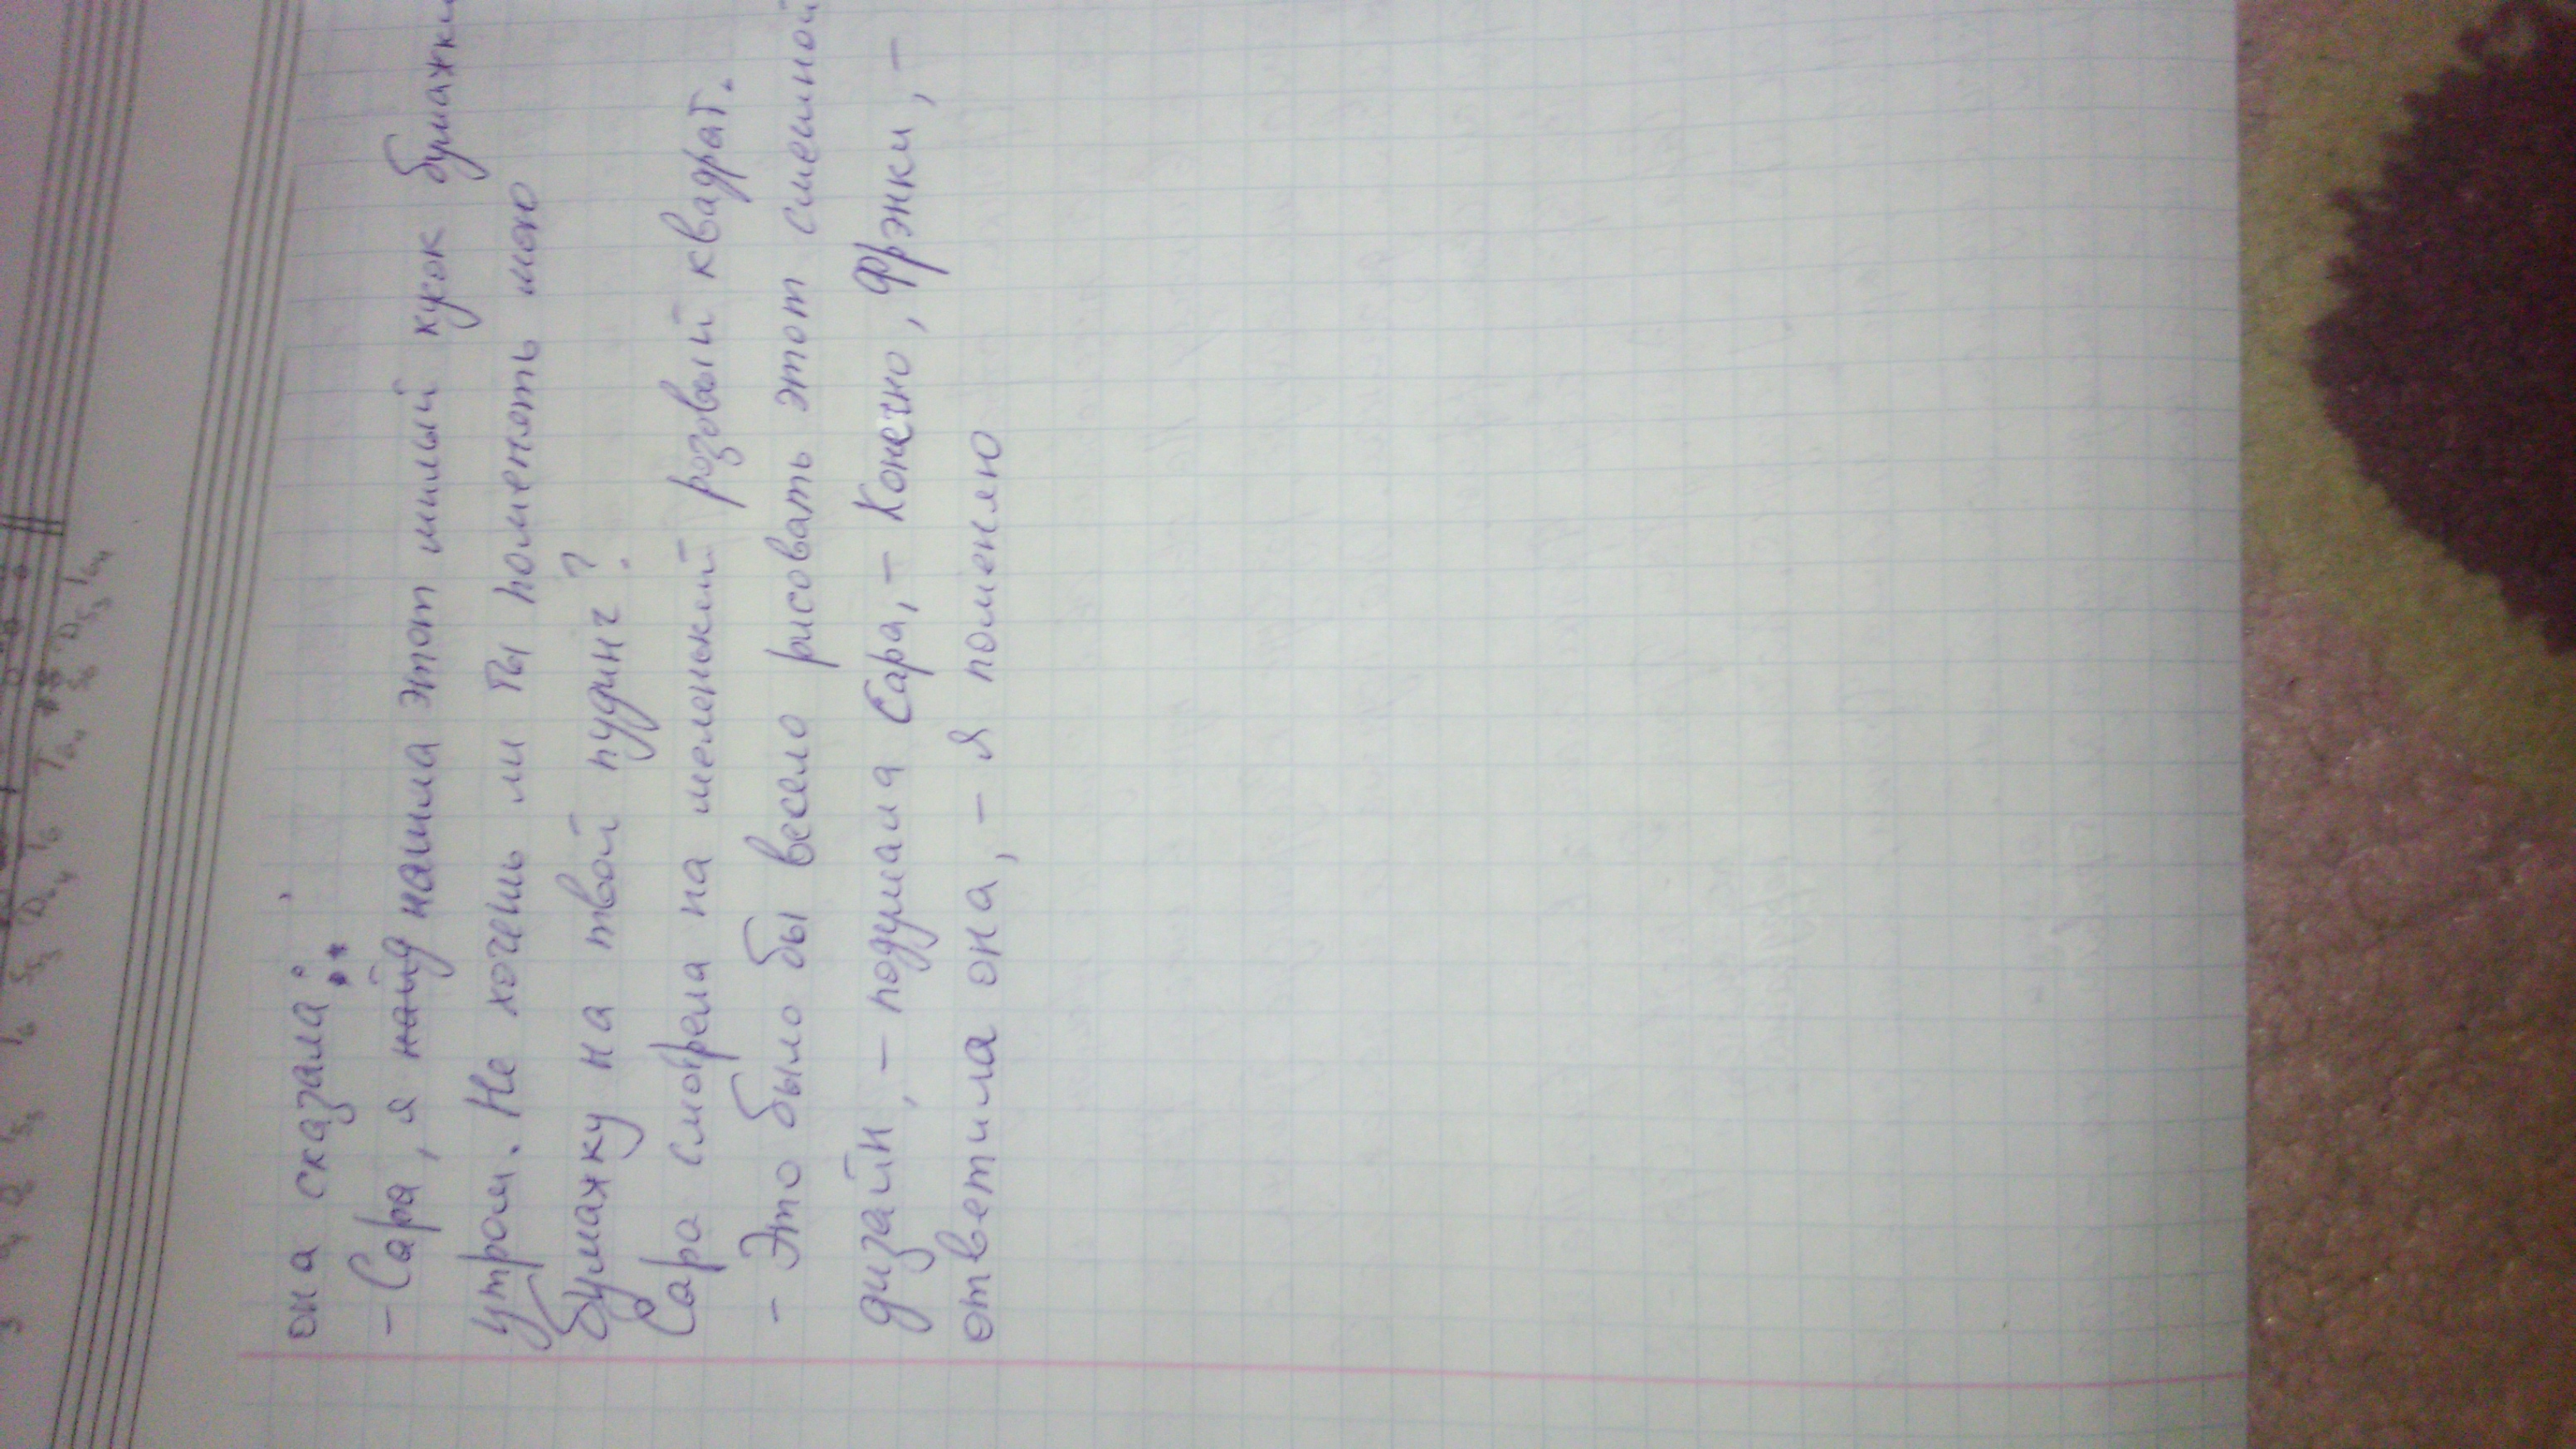 она сказала:
– Сара, я найд нашла этот милый кусок бумажки
утром. Не хочешь ли ты поменять мою
бумажку на твой пудинг?
Сара смотрела на меленький розовый квадрат.
– Это было бы весело рисовать этот смешной
дизайн, – подумала Сара, – Конечно, Фрэнки, –
ответила она, – я поменяю